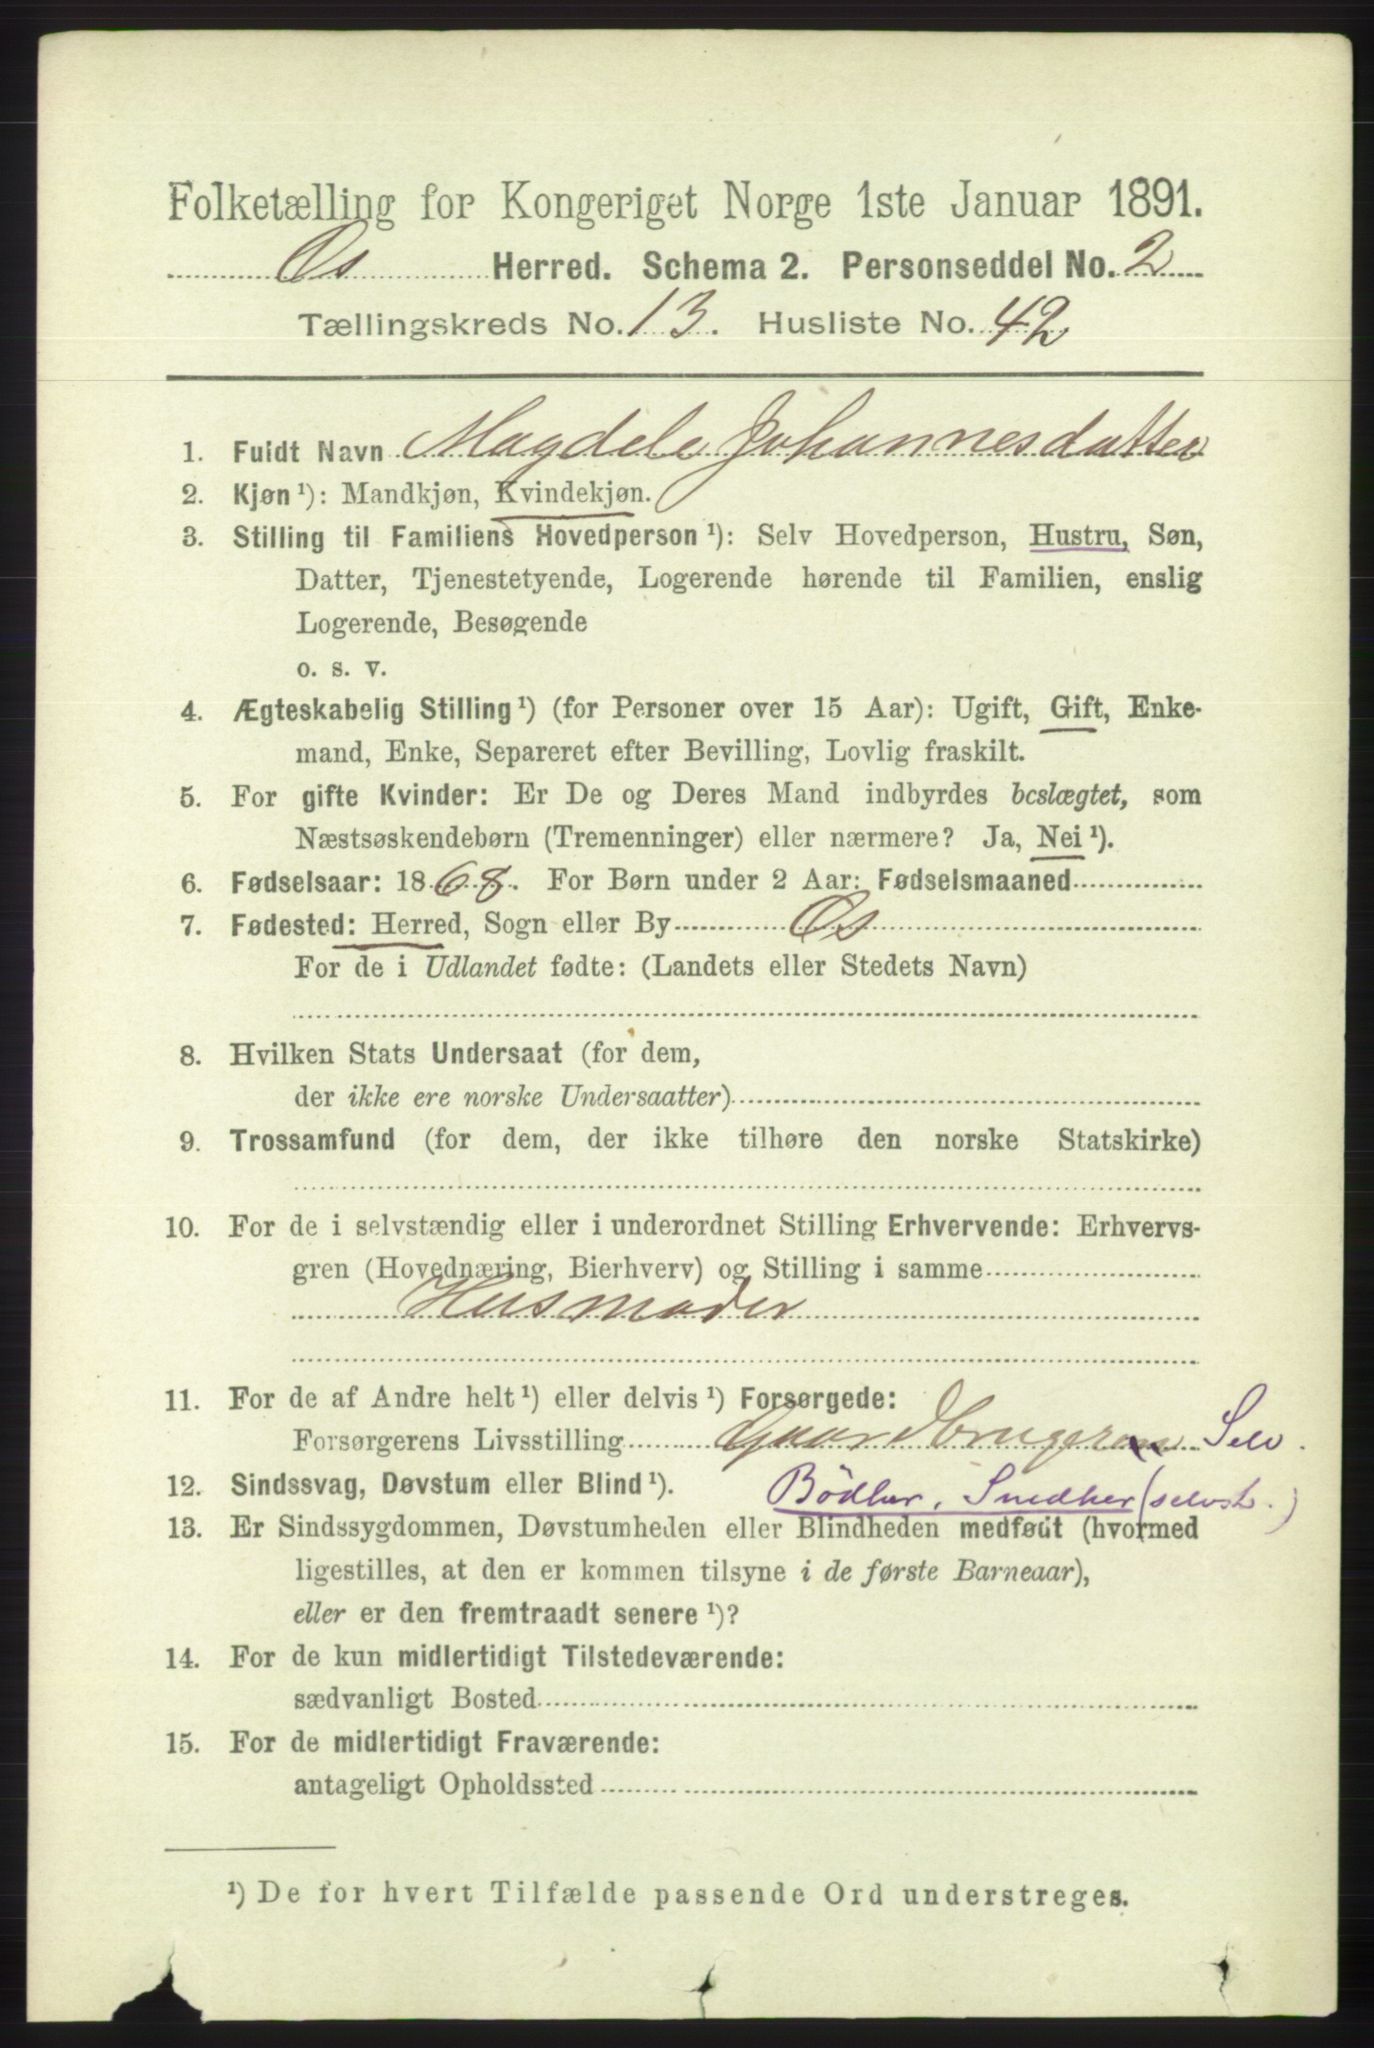 Folketælling for Kongeriget Norge 1ste Januar 1891.
Os Herred. Schema 2. Personseddel No. 2
Tællingskreds No. 13. Husliste No. 42
1. Fuldt Navn Magdele Johannesdatter
2. Kjøn ¹): Mandkjøn, Kvindekjøn.
3. Stilling til Familiens Hovedperson ¹): Selv Hovedperson, Hustru, Søn,
Datter, Tjenestetyende, Logerende hørende til Familien, enslig
Logerende, Besøgende
o. s. v.
4. Ægteskabelig Stilling ¹) (for Personer over 15 Aar): Ugift, Gift, Enke-
mand, Enke, Separeret efter Bevilling, Lovlig fraskilt.
5. For gifte Kvinder: Er De og Deres Mand indbyrdes beslægtet, som
Næstsøskendebørn (Tremenninger) eller nærmere? Ja, Nei ¹).
6. Fødselsaar: 1868. For Børn under 2 Aar: Fødselsmaaned
7. Fødested: Herred, Sogn eller By Os
For de i Udlandet fødte: (Landets eller Stedets Navn)
8. Hvilken Stats Undersaat (for dem,
der ikke ere norske Undersaatter)
9. Trossamfund (for dem, der ikke tilhøre den norske Statskirke)
10. For de i selvstændig eller i underordnet Stilling Erhvervende: Erhvervs-
gren (Hovednæring, Bierhverv) og Stilling i samme
Husmoder
11. For de af Andre helt ¹) eller delvis ¹) Forsørgede:
Forsørgerens Livsstilling Gaardbruger Selv.
12. Sindssvag, Døvstum eller Blind ¹). Bödker, Snedker (selvst.)
13. Er Sindssygdommen, Døvstumheden eller Blindheden medfødt (hvormed
ligestilles, at den er kommen tilsyne i de første Barneaar),
eller er den fremtraadt senere ¹)?
14. For de kun midlertidigt Tilstedeværende:
sædvanligt Bosted
15. For de midlertidigt Fraværende:
antageligt Opholdssted
¹) De for hvert Tilfælde passende Ord understreges.